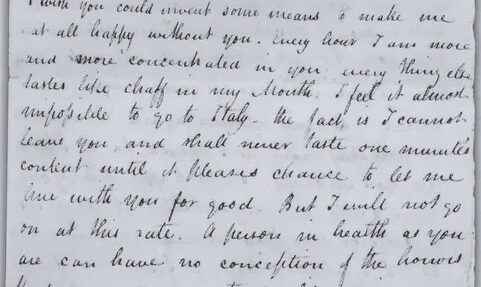 I wish you could invent some means to make me
at all happy without you. Every hour I am more
and more concentrated in you every thing else
tastes like chaff in my Mouth I feel it almost
impossible to go to Italy - the fact is I cannot
leave you, and shall never taste one minute's
content until it pleases chance to let me
live with you for good. But I will not go
on at this rate. A person in health as you
are can have no conception of the horrors